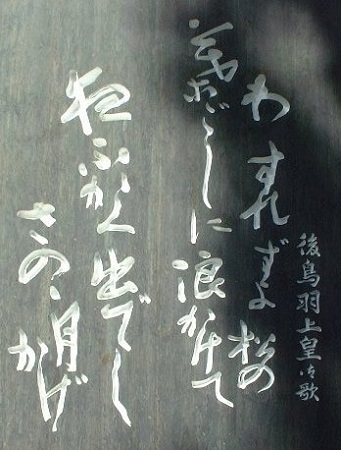 後鳥羽上皇御歌
わすれずよ松の
葉ごしに浪かけて
夜ふかく出でし
さのゝ月かげ